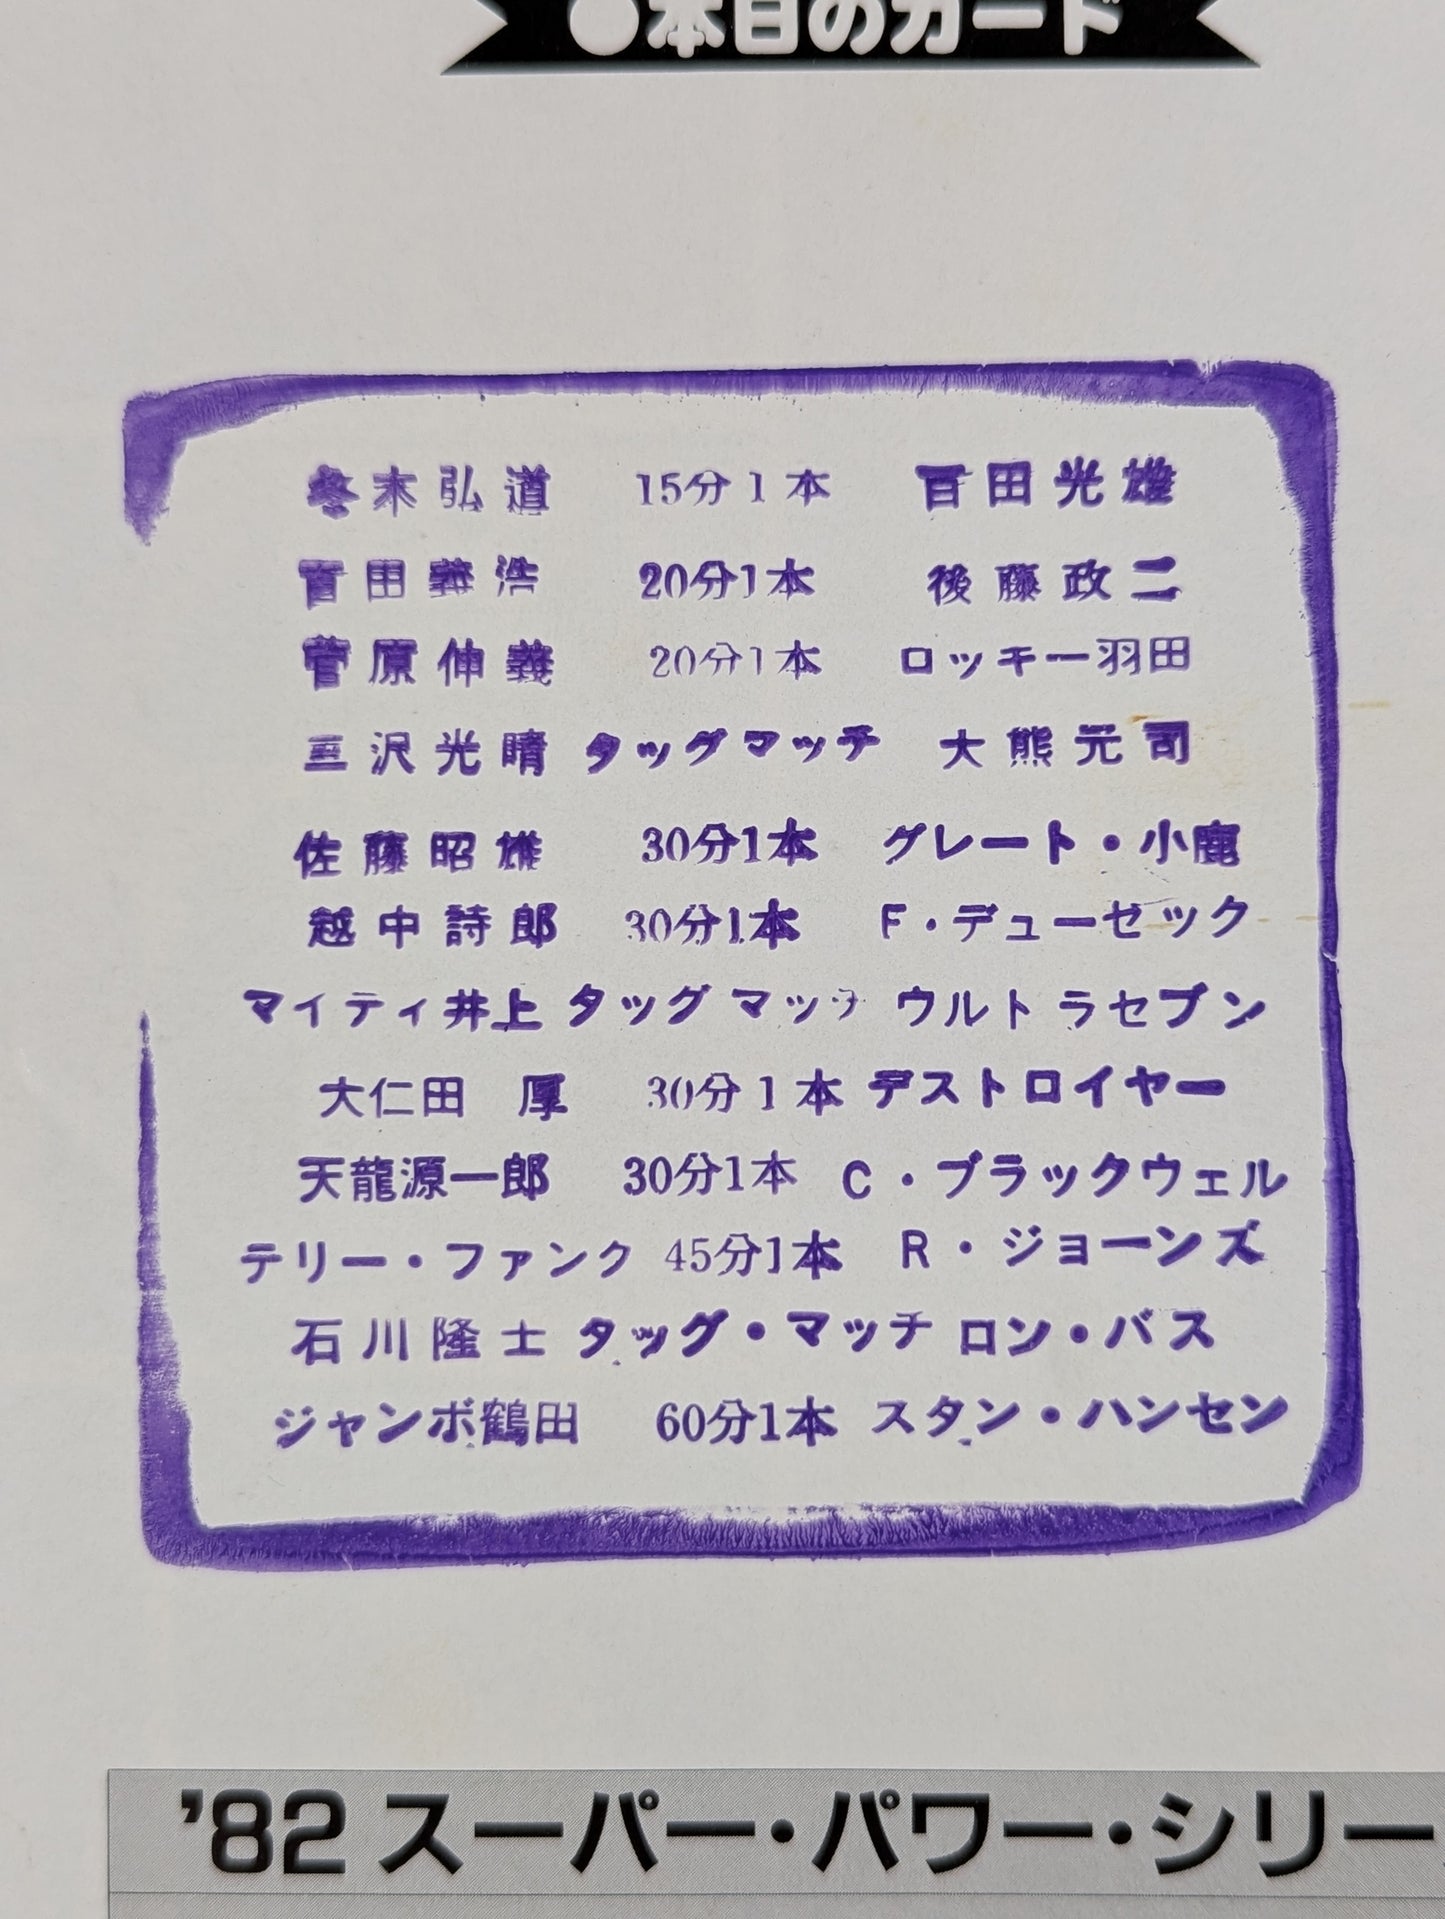 ●本日のカード
冬木弘道 15分1本 百田光雄
百田義浩 20分1本 後藤政二
菅原伸義 20分1本 ロッキー羽田
三沢光晴 タッグマッチ 大熊元司
佐藤昭雄 30分1本 グレート・小鹿
越中詩郎 30分1本 F・デューセック
マイティ井上 タッグマッチ ウルトラセブン
大仁田 厚 30分1本 デストロイヤー
天龍源一郎 30分1本 C・ブラックウェル
テリー・ファンク 45分1本 R・ジョーンズ
石川隆士 タッグ・マッチ ロン・バス
ジャンボ鶴田 60分1本 スタン・ハンセン
'82スーパー・パワー・シリー